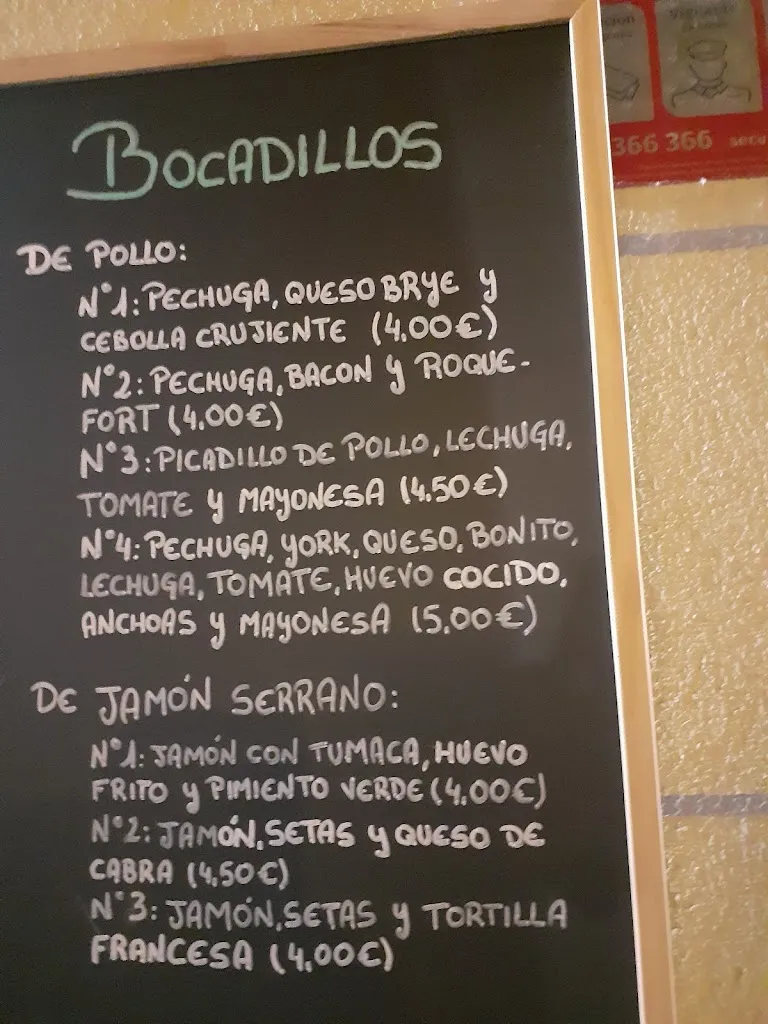 BOCADILLOS
DE POLLO:
N°1: PECHUGA, QUESO BRYE Y
CEBOLLA CRUJIENTE (4.00€)
N°2: PECHUGA, BACON Y ROQUE-
FORT (4.00€)
N°3: PICADILLO DE POLLO, LECHUGA,
TOMATE Y MAYONESA (4.50€)
N°4: PECHUGA, YORK, QUESO, BONITO,
LECHUGA, TOMATE, HUEVO COCIDO,
ANCHOAS Y MAYONESA (5.00€)
DE JAMÓN SERRANO:
N°1: JAMÓN CON TUMACA, HUEVO
FRITO Y PIMIENTO VERDE (4.00€)
N°2: JAMÓN, SETAS Y QUESO DE
CABRA (4,50€)
N°3: JAMÓN, SETAS Y TORTILLA
FRANCESA (4,00€)
366 366 secu